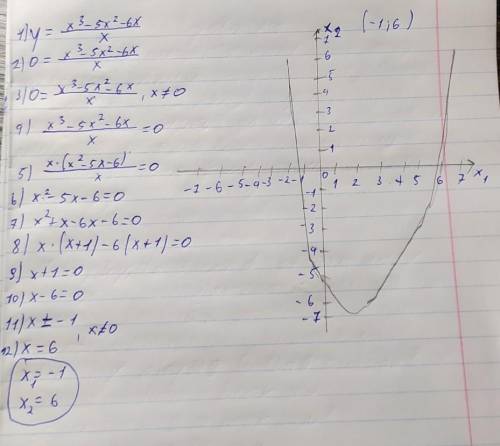 1) y = (x³-5x²-6x)/x
2) 0 = (x³-5x²-6x)/x
3) 0 = (x³-5x²-6x)/x, x≠0
4) (x³-5x²-6x)/x = 0
5) (x·(x²-5x-6))/x = 0
6) x²-5x-6=0
7) x²+x-6x-6=0
8) x·(x+1)-6(x+1)=0
9) x+1=0
10) x-6=0
11) x = -1
12) x = 6, x≠0
x₁ = -1
x₂ = 6
x₂ (-1;6)
7
6
5
4
3
2
1
-7 -6 -5 -4 -3 -2 -1 0 1 2 3 4 5 6 7 x₁
-1
-2
-4
-5
-6
-7